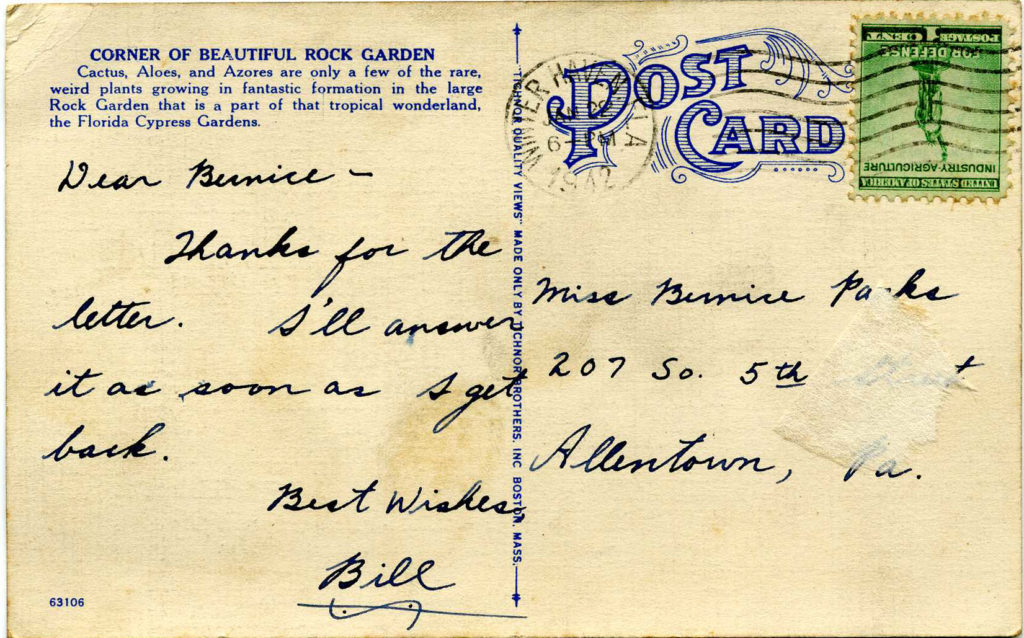 CORNER OF BEAUTIFUL ROCK GARDEN
Cactus, Aloes, and Azores are only a few of the rare,
weird plants growing in fantastic formation in the large
Rock Garden that is a part of that tropical wonderland,
the Florida Cypress Gardens.
Dear Bernice –
Thanks for the
letter. I'll answer
it as soon as I get
back.
Best Wishes
Bill
63106
"TICHNOR QUALITY VIEWS" MADE ONLY BY TICHNOR BROTHERS, INC BOSTON, MASS.
POST CARD
WINTER HAVEN FLA
JAN
6– PM
1942
1 CENT
POSTAGE
FOR DEFENSE
INDUSTRY-AGRICULTURE
UNITED STATES OF AMERICA
Miss Bernice Parks
207 So. 5th Street
Allentown, Pa.